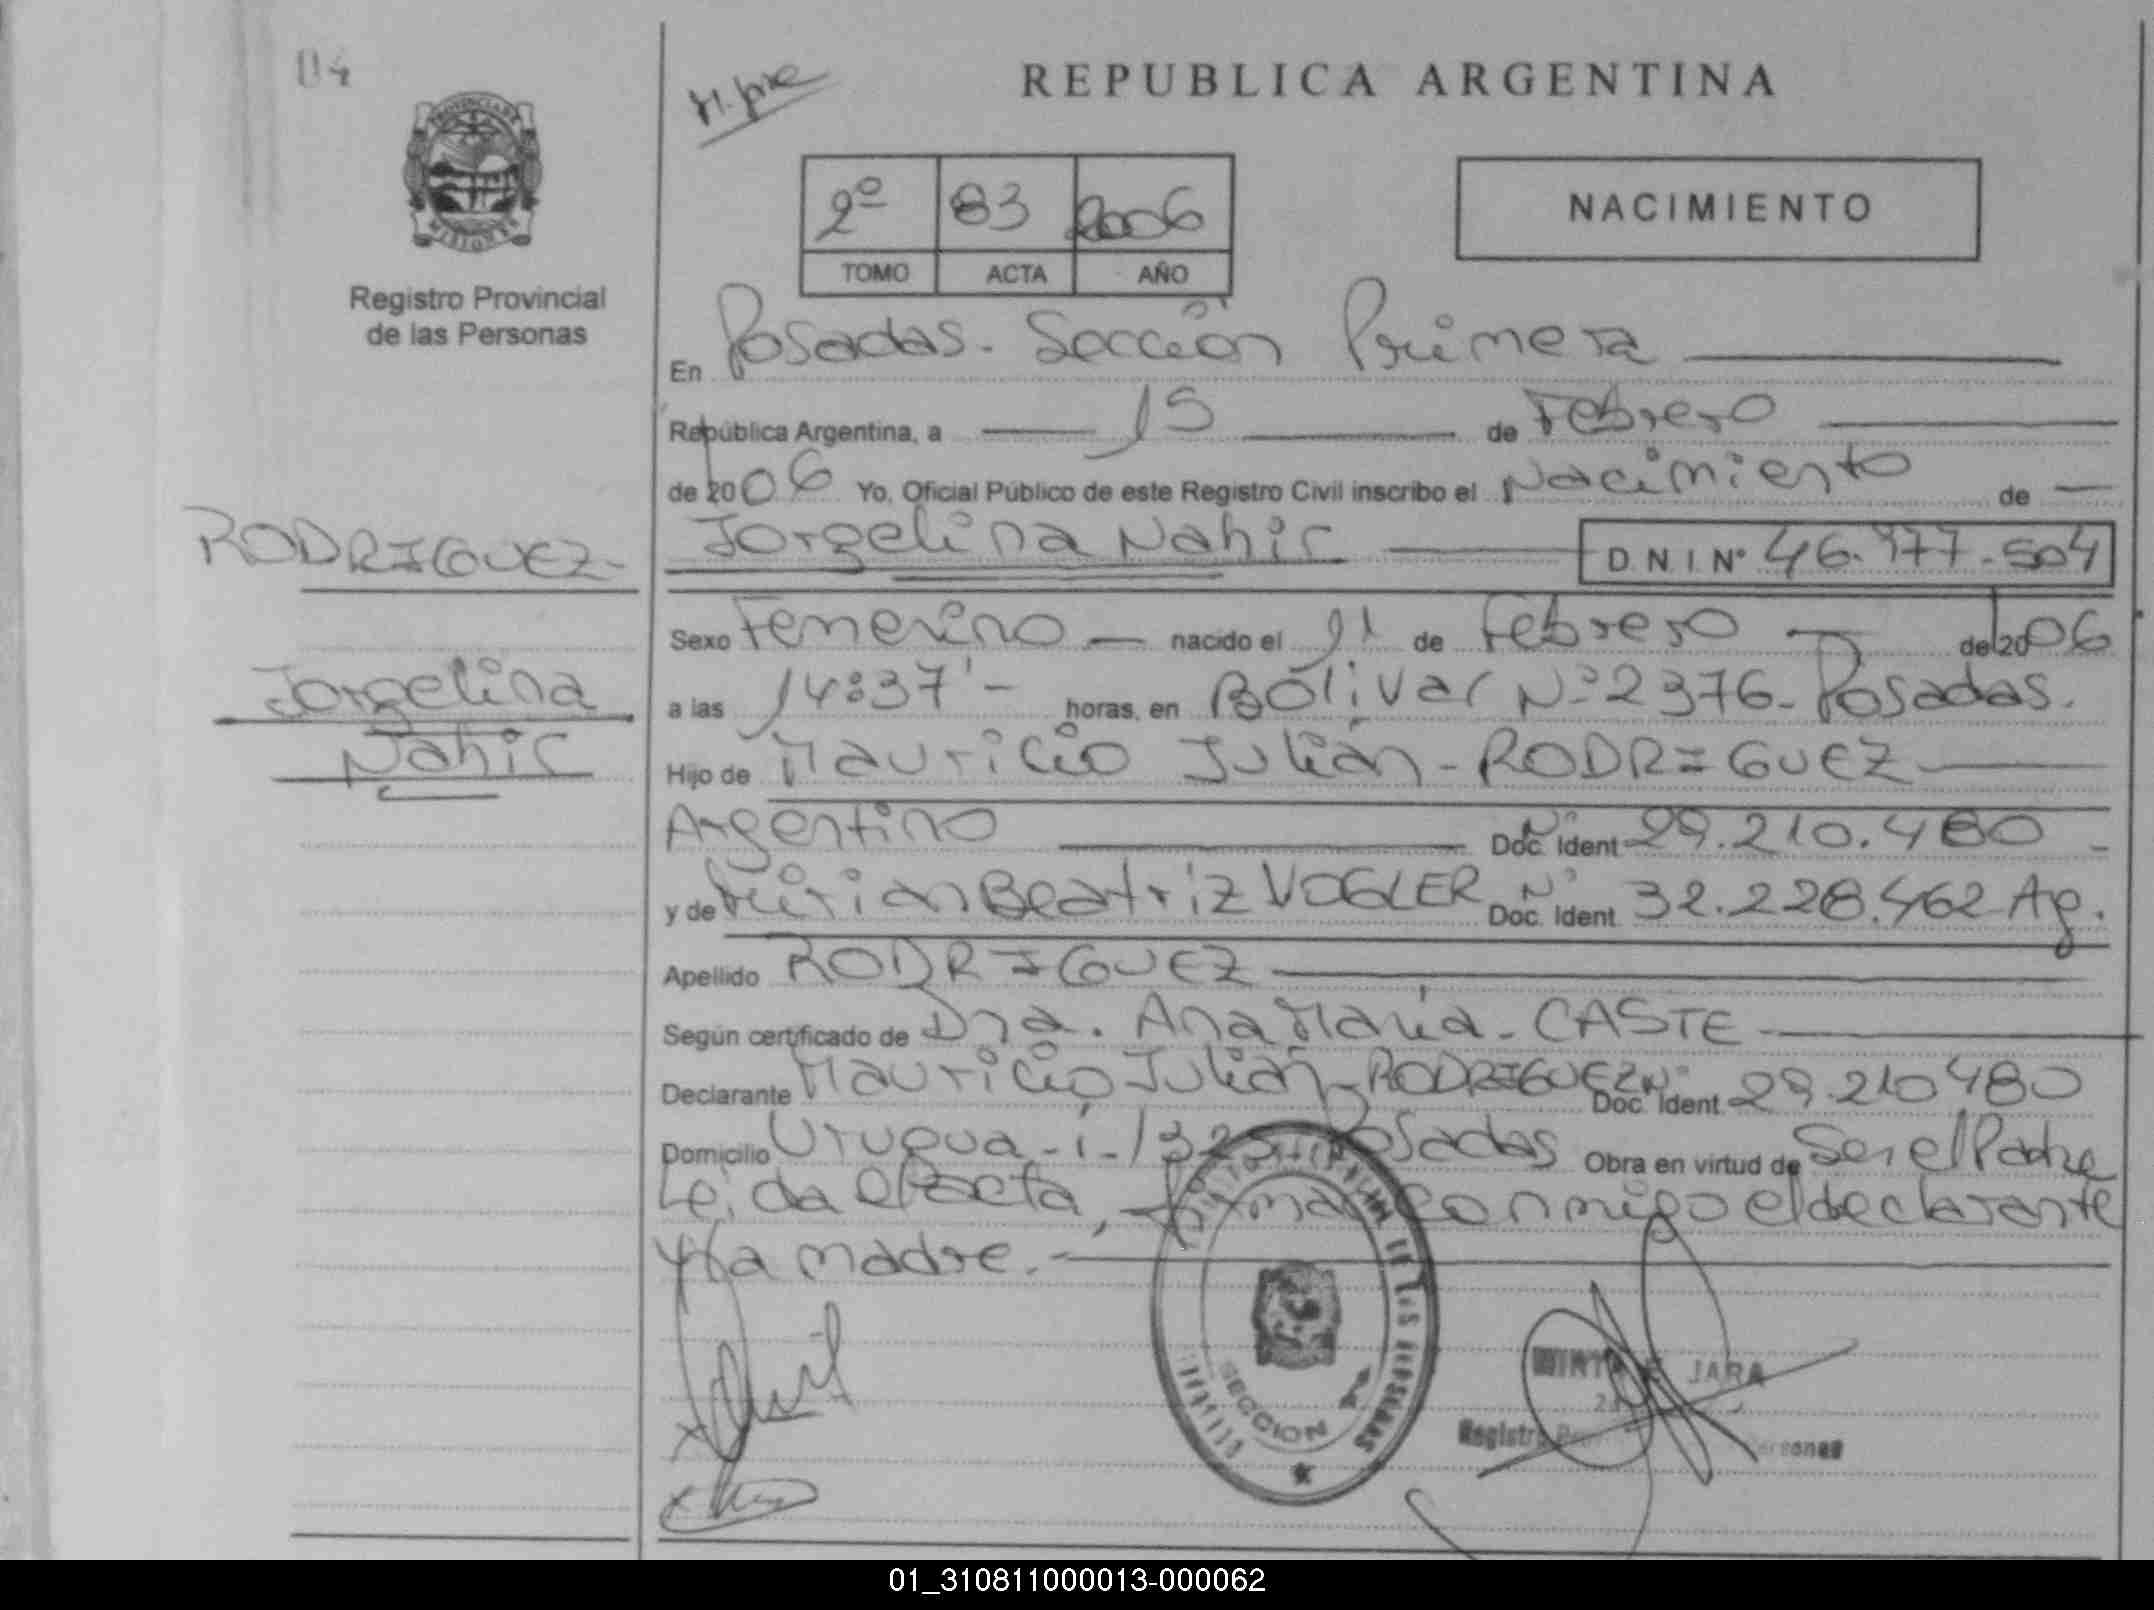 04
PROVINCIA DE
MISIONES
Registro Provincial
de las Personas
RODRIGUEZ-
Jorgelina
Nahir
REPUBLICA ARGENTINA
2º 83 2006
TOMO ACTA AÑO
NACIMIENTO
En Posadas. Sección Primera
República Argentina, a 15 de Febrero
de 2006 Yo, Oficial Público de este Registro Civil inscribo el Nacimiento de
Jorgelina Nahir D.N.I. Nº 46.977.504
Sexo Femenino nacido el 11 de Febrero de 2006
a las 14:37'- horas, en Bólivar Nº 2376- Posadas.
Hijo de Mauricio Julián - RODRIGUEZ
Argentino Doc. Ident Nº 29.210.480 -
y de Mirian Beatriz VOGLER Doc. Ident. Nº 32.228.462 Ag.
Apellido RODRIGUEZ
Según certificado de Dra. Ana María - CASTE
Declarante Mauricio Julián - RODRIGUEZ Doc. Ident Nº 29.210480
Domicilio Posadas Obra en virtud de Ser el Padre
Leida el acta, firma conmigo el declarante
y la madre. -
DE LAS PERSONAS
SECCION 1a
JARA
Registro Personas
01_310811000013-000062